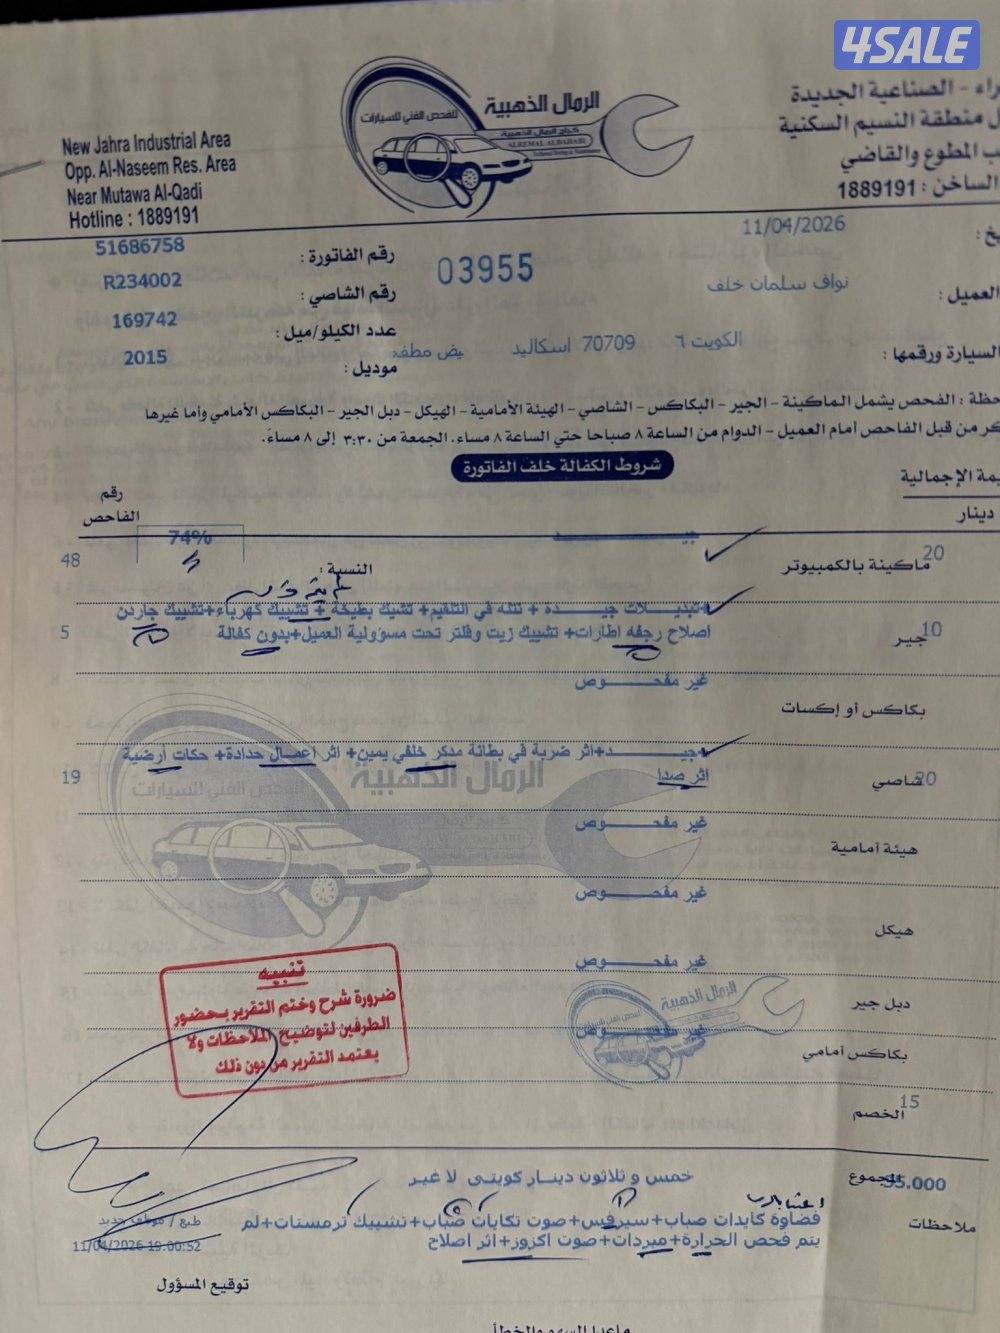 4SALE
راء - الصناعية الجديدة
ل منطقة النسيم السكنية
ب المطوع والقاضي
الساخن : 1889191
الرمال الذهبية
للفحص الفني للسيارات
كراج الرمال الذهبية
ALREMAL ALDAHABI
New Jahra Industrial Area
Opp. Al-Naseem Res. Area
Near Mutawa Al-Qadi
Hotline : 1889191
يخ : 11/04/2026
رقم الفاتورة : 51686758
03955
العميل : نواف سلمان خلف
رقم الشاصي : R234002
عدد الكيلو/ميل : 169742
السيارة ورقمها : الكويت ٦ 70709 اسكاليد يض مطفي
موديل : 2015
حظة : الفحص يشمل الماكينة - الجير - البكاكس - الشاصي - الهيئة الأمامية - الهيكل - دبل الجير - البكاكس الأمامي وأما غيرها
كر من قبل الفاحص أمام العميل - الدوام من الساعة ٨ صباحا حتي الساعة ٨ مساء. الجمعة من ٣:٣٠ إلى ٨ مساءً.
شروط الكفالة خلف الفاتورة
يمة الإجمالية
دينار
رقم الفاحص
20 ماكينة بالكمبيوتر جيـــــد النسبة : 74% 48
10 جير +تبديلات جيـــده + نتله في التلقيم+ تشيك بطيخة + تشييك كهرباء+تشييك جاردن
اصلاح رجفه اطارات+ تشييك زيت وفلتر تحت مسؤولية العميل+بدون كفالة 5
بكاكس أو إكسات غير مفحـــــوص
20 شاصي +جيـــــد+اثر ضربة في بطانة مدكر خلفي يمين+ اثر اعمال حدادة+ حكات أرضية
اثر صدا 19
هيئة أمامية غير مفحـــــوص
هيكل غير مفحـــــوص
دبل جير غير مفحـــــوص
بكاكس أمامي غير مفحـــــوص
تنبيه
ضرورة شرح وختم التقرير بحضور
الطرفين لتوضيح الملاحظات ولا
يعتمد التقرير من دون ذلك
الرمال الذهبية
للفحص الفني للسيارات
15 الخصم
المجموع 35.000 خمس و ثلاثون دينار كويتى لا غير
ملاحظات فضاوة كايدات صباب+سيرفس+صوت تكايات صباب+تشييك ترمستات+لم
يتم فحص الحرارة+مبردات+صوت اكزوز+اثر اصلاح
طبع / موظف جديد
11/04/2026 19:00:52
توقيع المسؤول
ماعدا السهو والخطأ